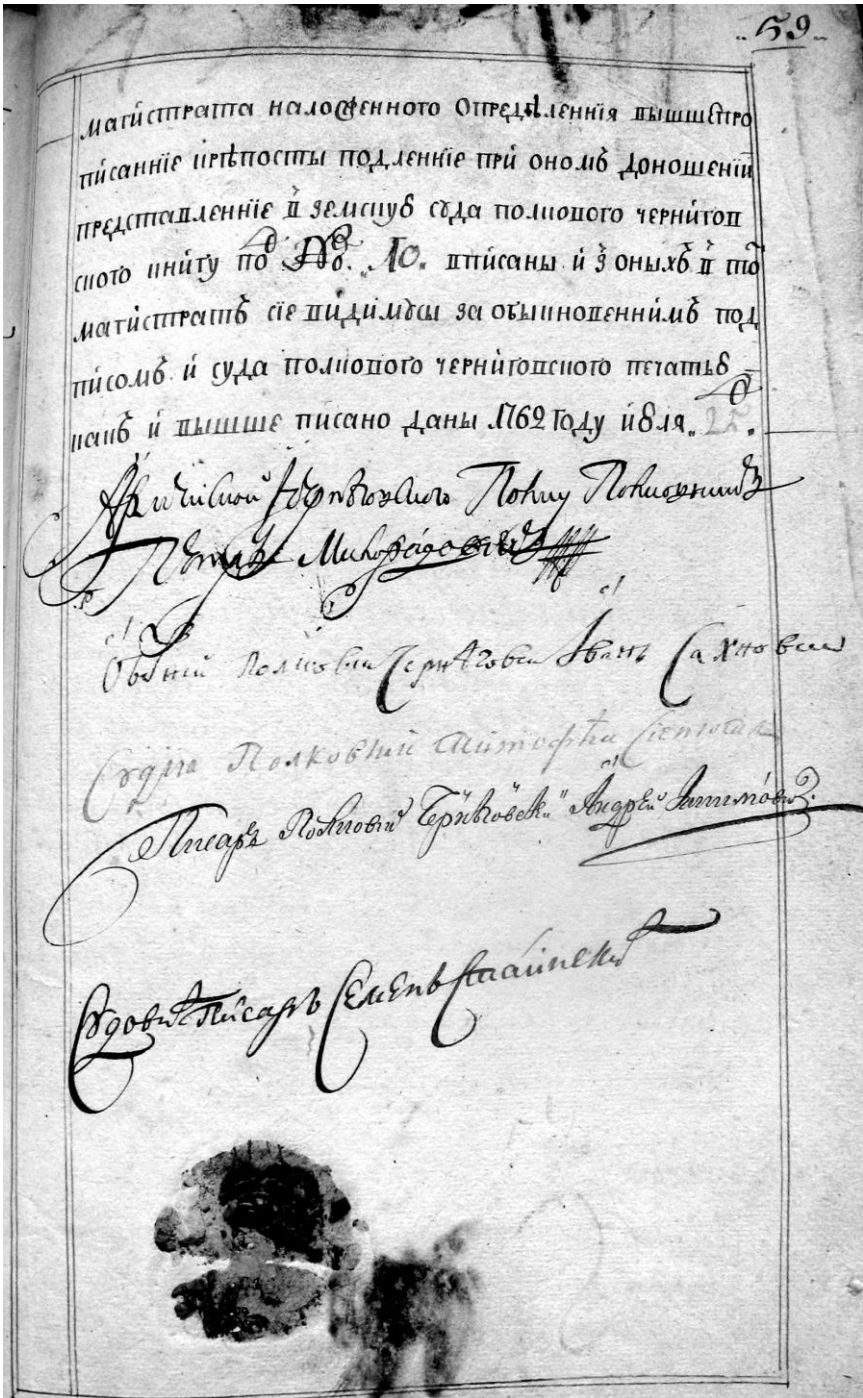 59
магистрата наложенного опредѣленнія вышшепро
писанніе крѣпосты подленніе при ономъ доношеніи
представленніе в земскую суда полкового чернѣгов
ского книгу под №. 10. вписаны и з оныхъ в то
магистратъ сіе видимусы за обыкновеннимъ под
писомъ и суда полкового чернѣговского печатью
какъ и вышше писано даны 1762 году июля 25.
Армейской Чернѣговского Полку Полковникъ
Петръ Милорадовичъ
Обозній Полковий Чернѣговский Іванъ Сахновски
Судия Полковий
Писаръ Полковій Чернѣговски Андрей
Судовий Писаръ Семенъ